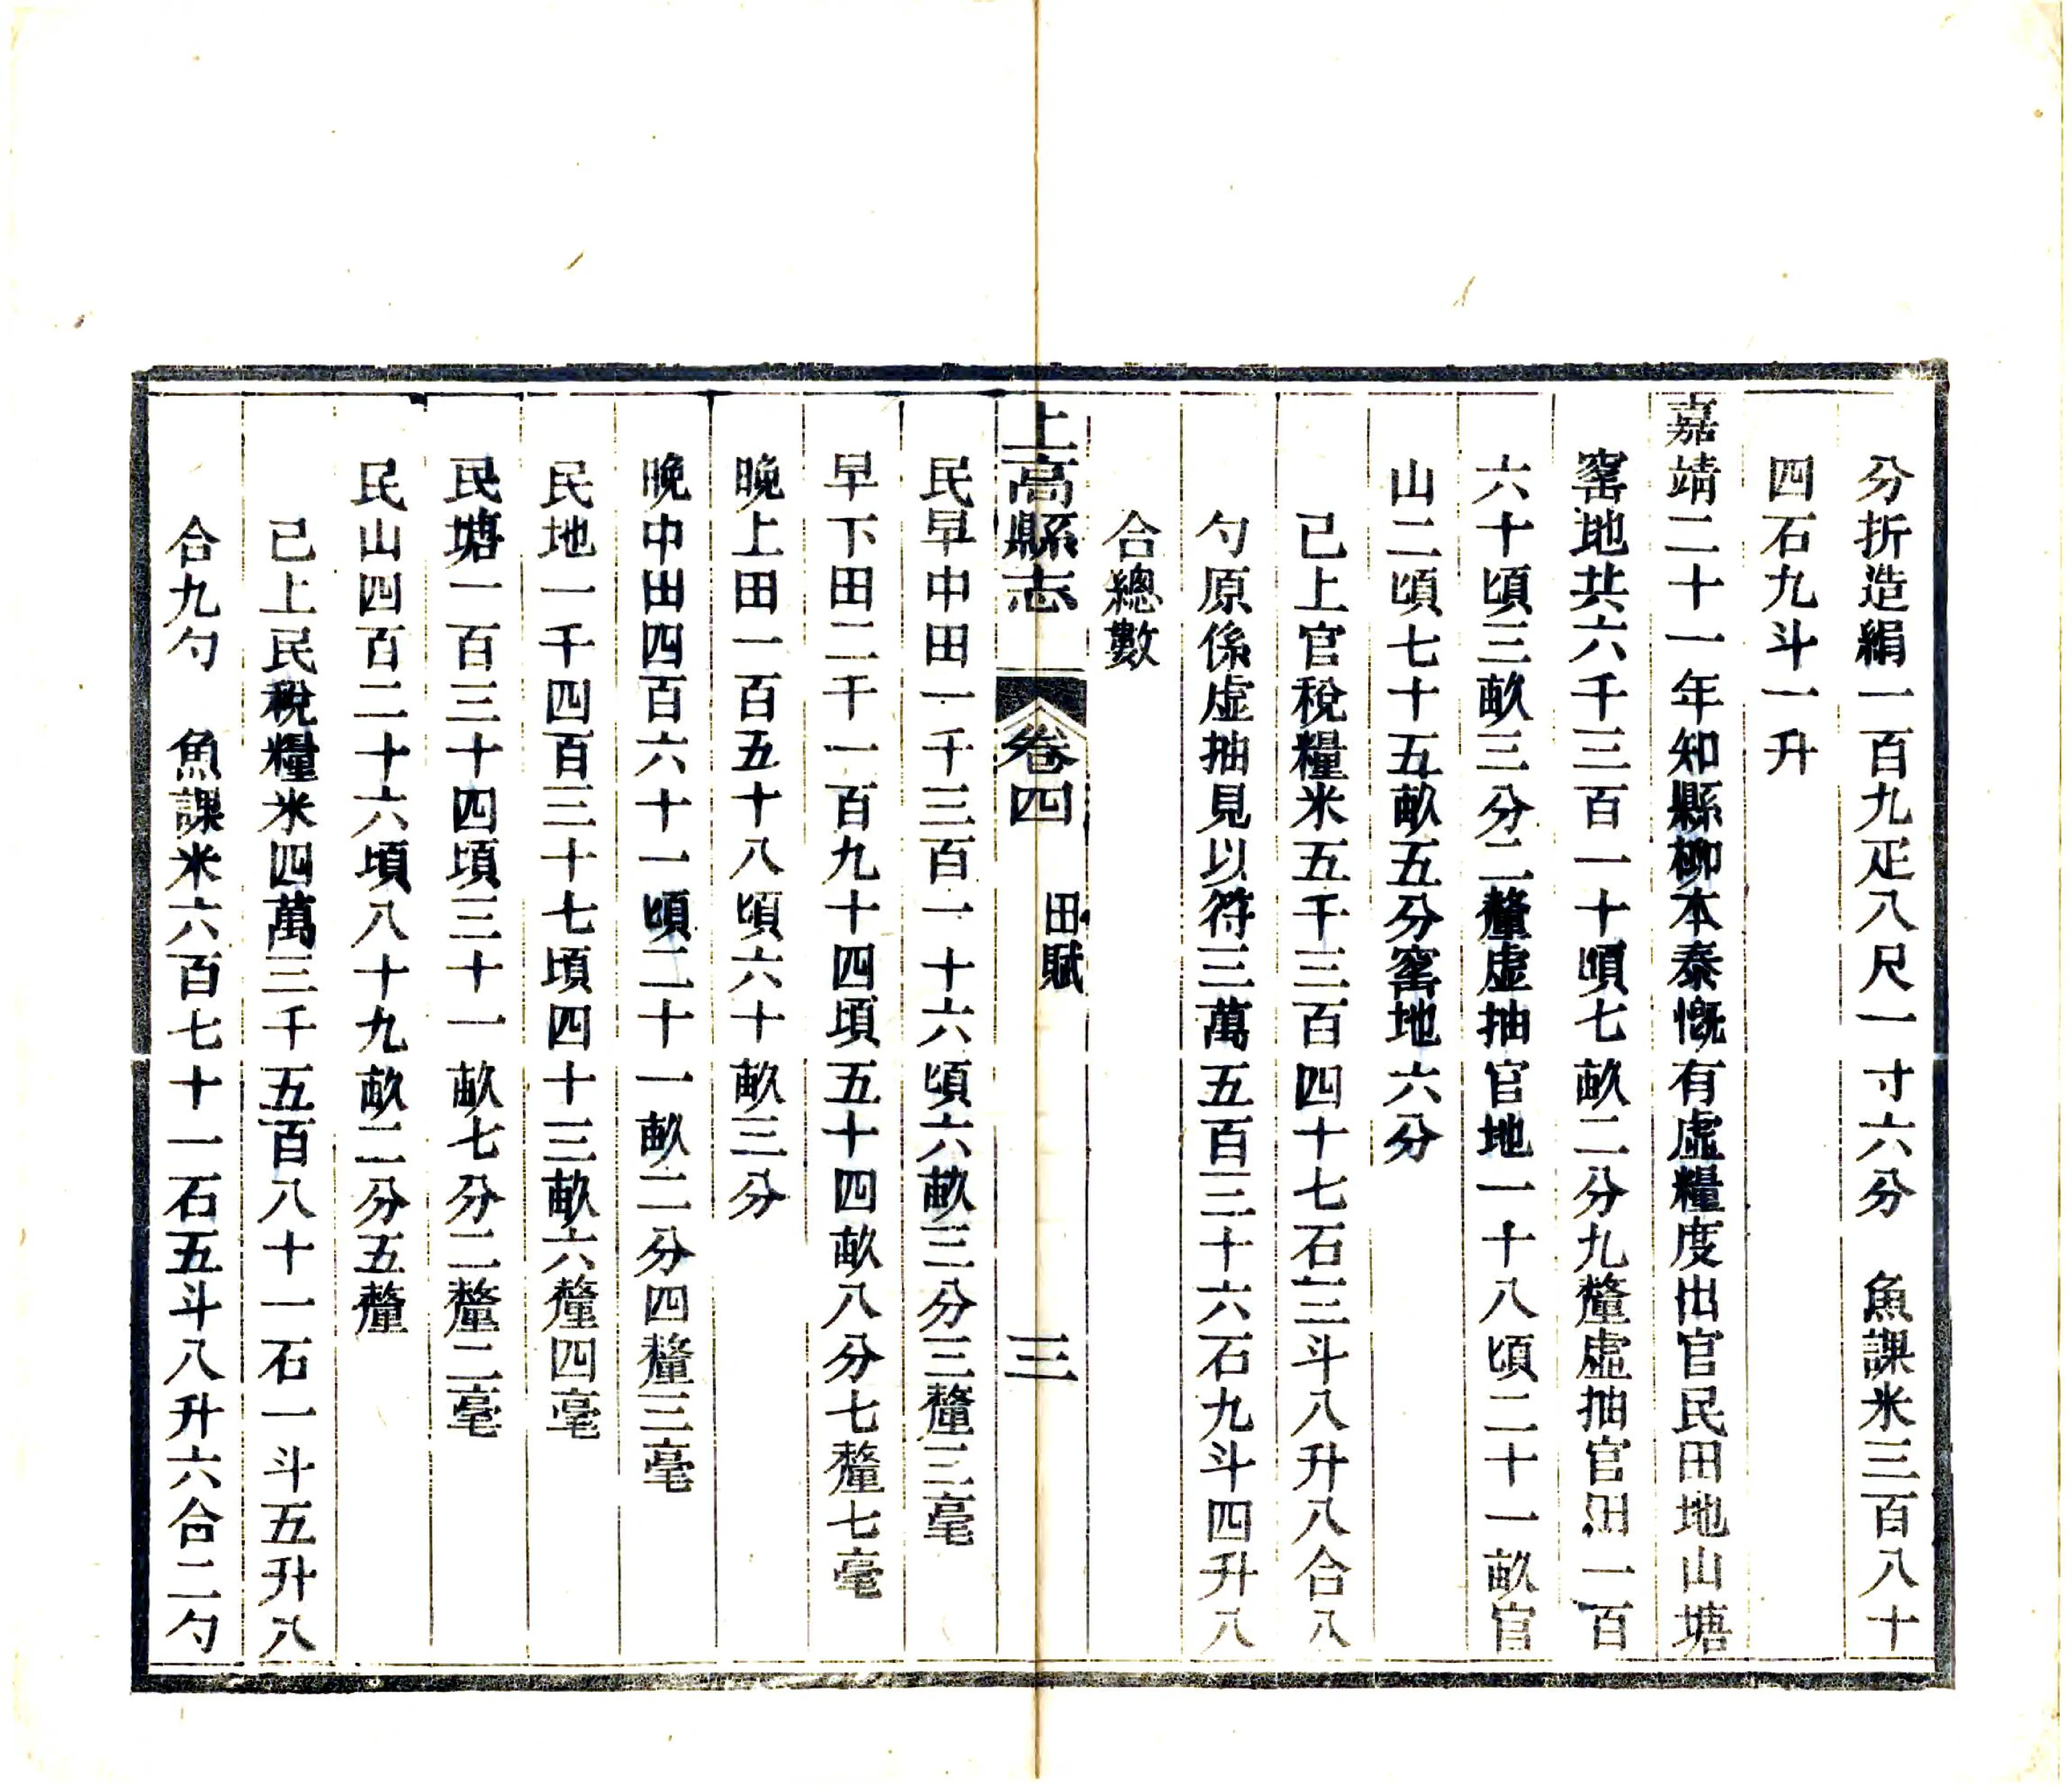 分折造絹一百九疋八尺一寸六分　魚課米三百八十
四石九斗一升
嘉靖二十一年知縣柳本泰慨有虛糧度出官民田地山塘
窰地共六千三百一十頃七畝二分九釐虛抽官田一百
六十頃三畝三分二釐虛抽官地一十八頃二十一畝官
山二頃七十五畝五分窰地六分
已上官稅糧米五千三百四十七石三斗八升八合八
勺原係虛抽見以符三萬五百三十六石九斗四升八
合總數
上高縣志　卷四　田賦　三
民早中田一千三百一十六頃六畝三分三釐三毫
早下田二千一百九十四頃五十四畝八分七釐七毫
晚上田一百五十八頃六十畝三分
晚中田四百六十一頃二十一畝二分四釐三毫
民地一千四百三十七頃四十三畝六釐四毫
民塘一百三十四頃三十一畝七分二釐二毫
民山四百二十六頃八十九畝二分五釐
已上民稅糧米四萬三千五百八十一石一斗五升八
合九勺　魚課米六百七十一石五斗八升六合二勺